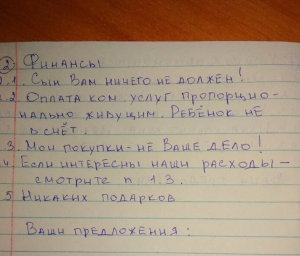 2. Финансы
2.1. Сын Вам ничего не должен!
2.2 Оплата ком. услуг пропорцио-
нально живущим. Ребёнок не
в счёт.
3. Мои покупки - не Ваше дело!
4. Если интересны наши расходы -
смотрите п 1.3.
5 Никаких подарков
Ваши предложения: